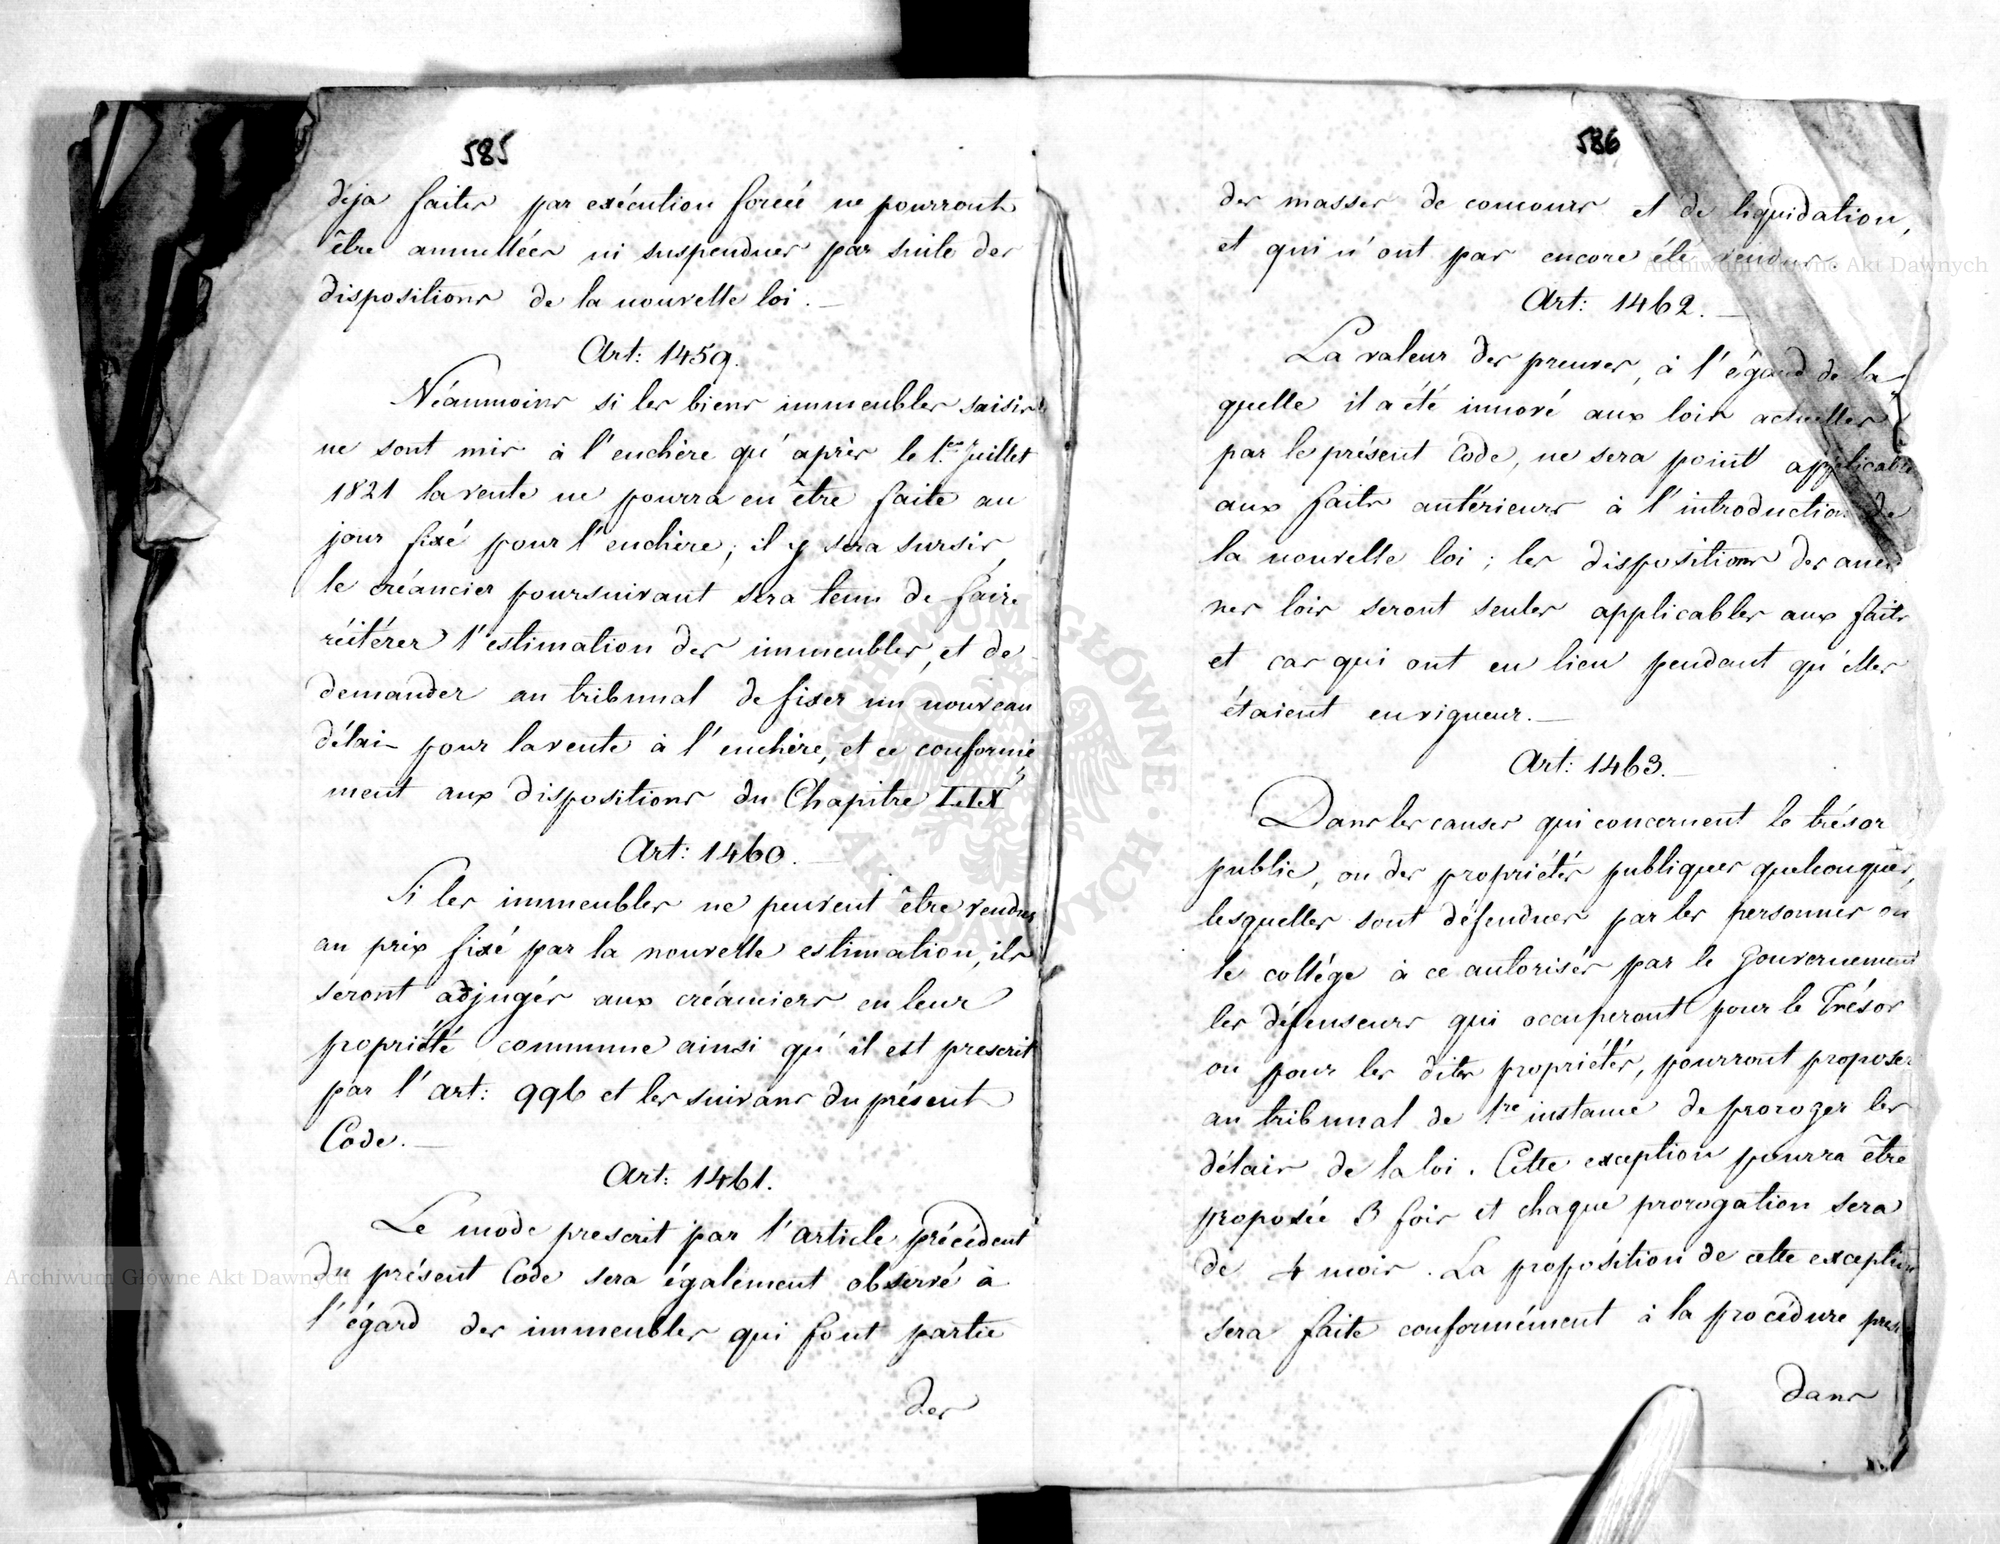 585
deja faites par exécution forcée ne pourront
être annullées ni suspendues par suite des
dispositions de la nouvelle loi. —
Art: 1459.
Néanmoins si les biens immeubles saisis
ne sont mis à l'enchère qu'après le 1er Juillet
1821 la vente ne pourra en être faite au
jour fixé pour l'enchère; il y sera sursis,
le créancier poursuivant sera tenu de faire
réitérer l'estimation des immeubles, et de
demander au tribunal de fixer un nouveau
délai pour la vente à l'enchère, et ce conformé
ment aux dispositions du Chapitre LIX
Art: 1460. —
Si les immeubles ne peuvent être vendus
au prix fixé par la nouvelle estimation, ils
seront adjugés aux créanciers en leur
propriété commune ainsi qu'il est prescrit
par l'art: 996 et les suivans du présent
Code. —
Art: 1461.
Le mode prescrit par l'article précédent
du présent Code sera également observé à
l'égard des immeubles qui font partie
des
586
des masses de concours et de liquidation,
et qui n'ont pas encore été vendus.
Art: 1462. —
La valeur des preuves, à l'égard de la
quelle il a été innové aux lois actuelles
par le présent Code, ne sera point applicable
aux faits antérieurs à l'introduction de
la nouvelle loi; les dispositions des ancien
nes lois seront seules applicables aux faits
et cas qui ont eu lieu pendant qu'elles
étaient en vigueur. —
Art: 1463. —
Dans les causes qui concernent le trésor
public, ou des propriétés publiques quelconques,
lesquelles sont défendues par les personnes ou
le collége à ce autorisés par le Gouvernement
les défenseurs qui occuperont pour le Trésor
ou pour les dites propriétés, pourront proposer
au tribunal de 1re instance de proroger les
délais de la loi. Cette exception pourra être
proposée 3 fois et chaque prorogation sera
de 4 mois. La proposition de cette exception
sera faite conformément à la procédure
dans
Archiwum Główne Akt Dawnych
Archiwum Główne Akt Dawnych
ARCHIWUM GŁÓWNE AKT DAWNYCH